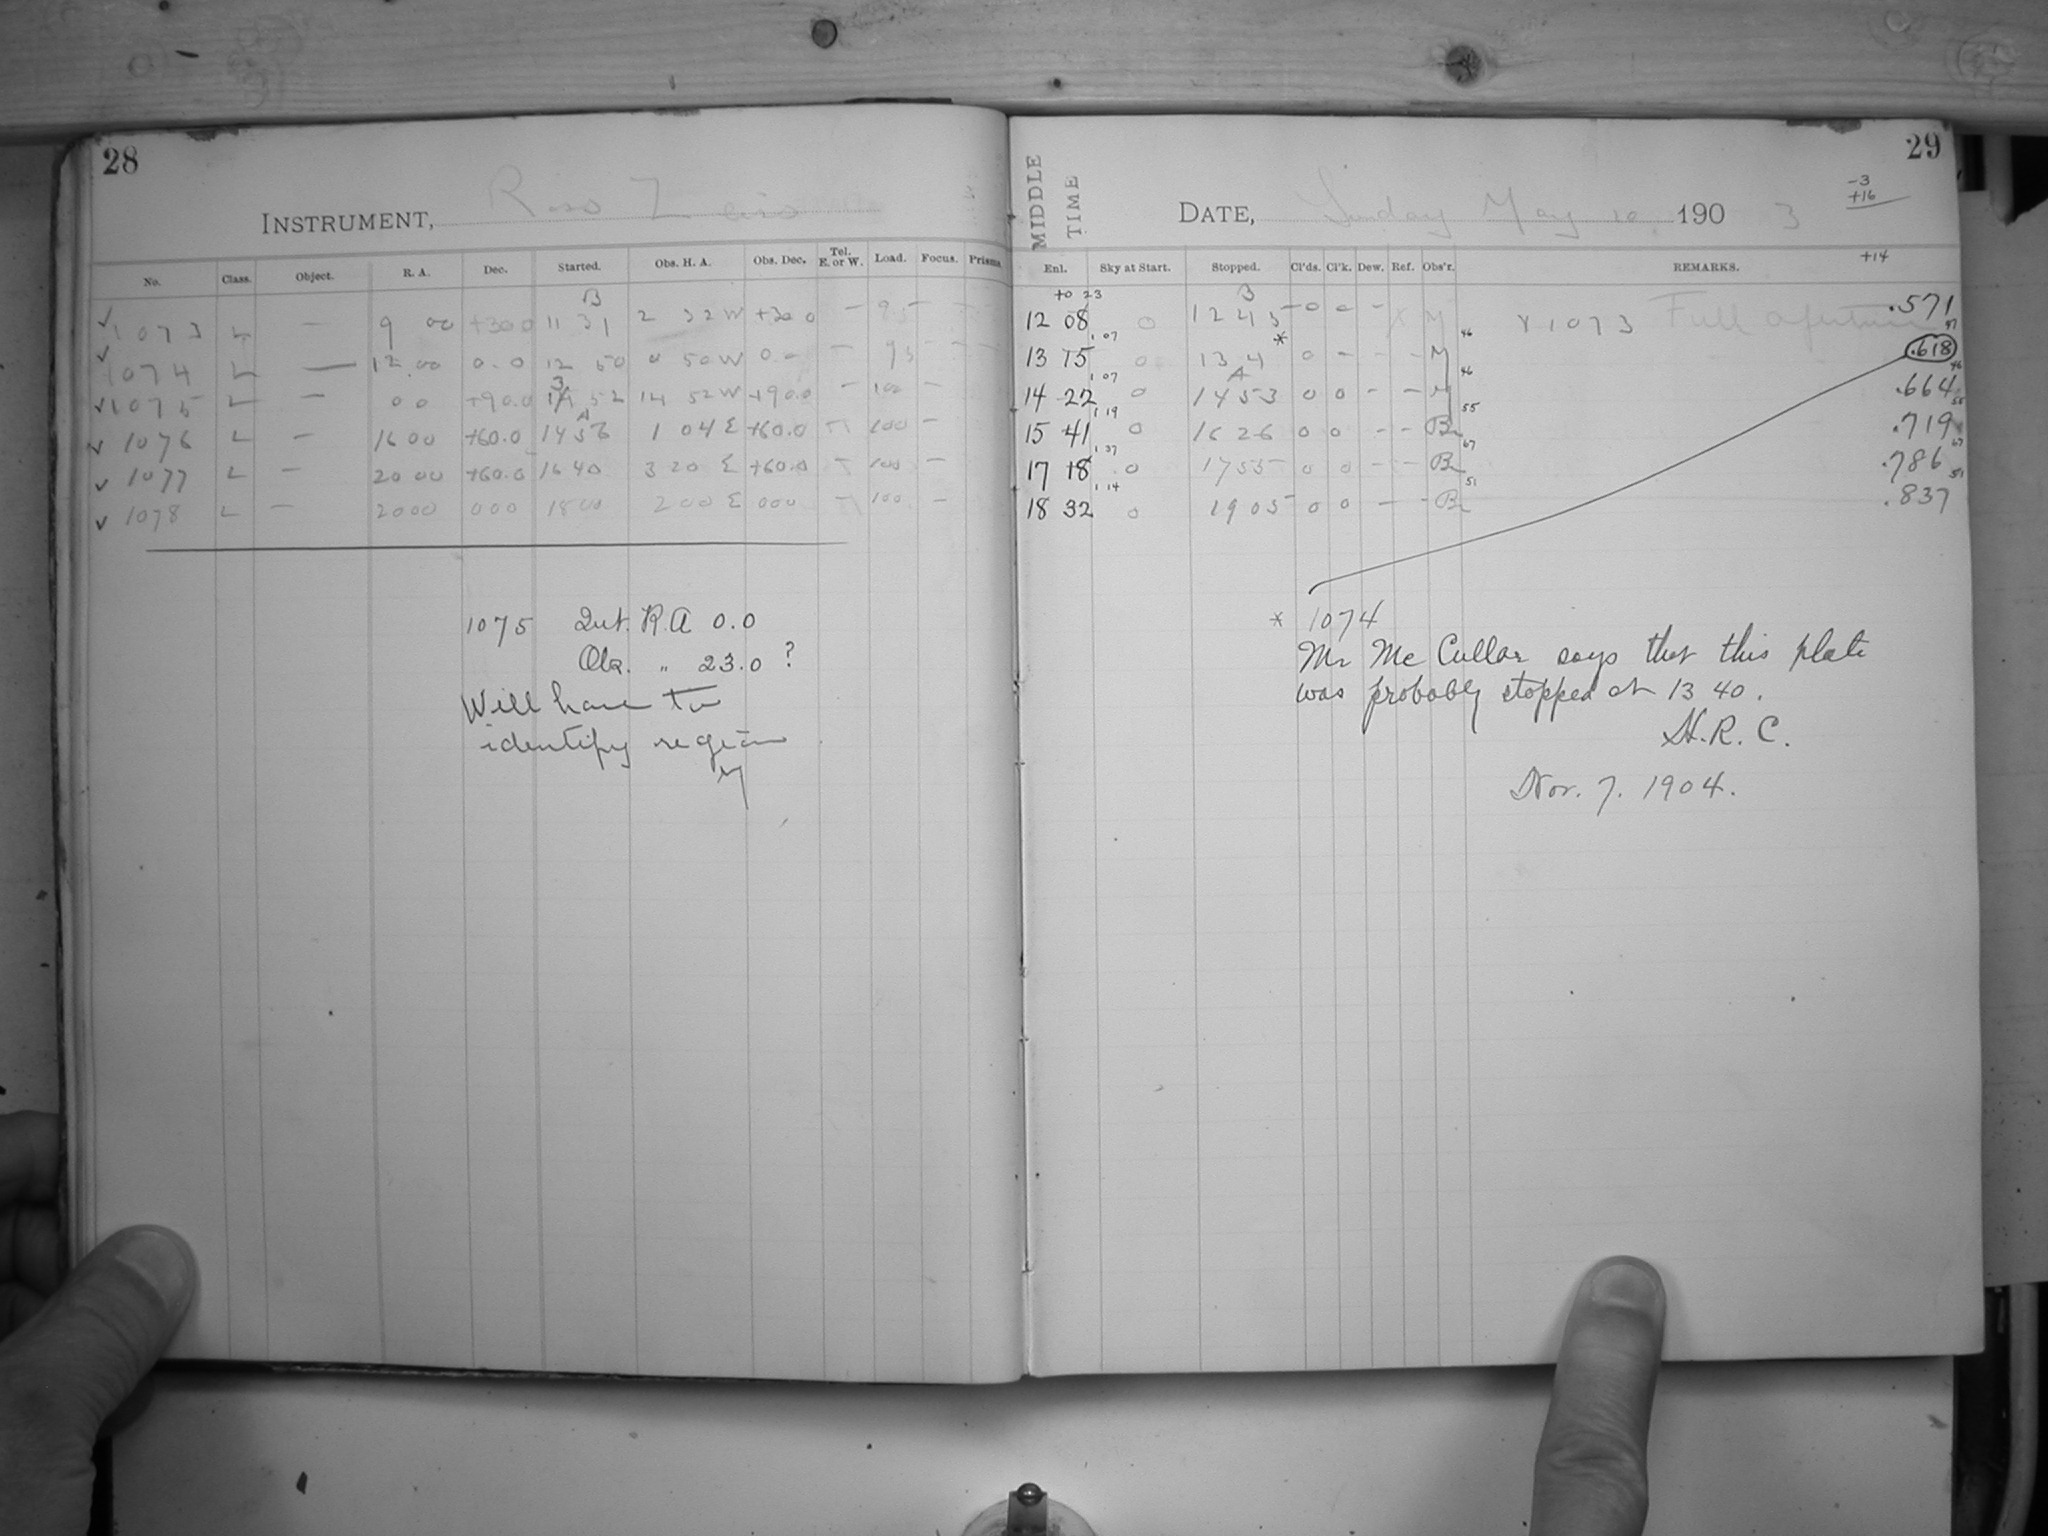 28
INSTRUMENT, Ross Zeiss
No. Class. Object. R. A. Dec. Started. Obs. H. A. Obs. Dec. Tel. E. or W. Load. Focus. Prisms.
✓ 1073 L — 9 00 +30.0 11 31 2 32 W +30 0 — 95 — —
✓ 1074 L — 12 00 0.0 12 50 0 50 W 0 — — 95 — —
✓ 1075 L — 0 0 +90.0 52 14 52 W +90.0 — 100 —
✓ 1076 L — 16 00 +60.0 14 56 1 04 E +60.0 100 —
✓ 1077 L — 20 00 +60.0 16 40 3 20 E +60.0 100 —
✓ 1078 L — 20 00 0 0 0 18 00 2 00 E 0 0 0 100 —
1075 Int. R.A 0.0
Obs. " 23.0 ?
Will have to
identify region
M
29
MIDDLE TIME
DATE, Sunday May 10 1903
-3
+16
+14
Enl. Sky at Start. Stopped. Cl'ds. Cl'k. Dew. Ref. Obs'r. REMARKS.
to 23
12 08 0 12 45 0 0 — X M x 1073 Full aperture .571
1 07 46 47
13 15 0 13 4 * 0 — — — M .618
1 07 46 46
14 22 0 14 53 0 0 — — M .664
1 19 55 55
15 41 0 16 26 0 0 — — Br .719
1 37 67 67
17 18 0 17 55 0 0 — — Br .786
1 14 51 51
18 32 0 19 05 0 0 — — Br .837
* 1074
Mr Mc Cullar says that this plate
was probably stopped at 13 40.
H. R. C.
Nov. 7. 1904.